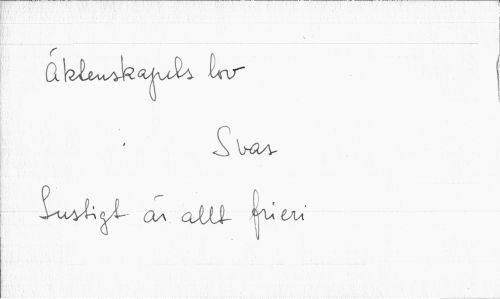 Äktenskapets lov
Svar
Lustigt är allt frieri